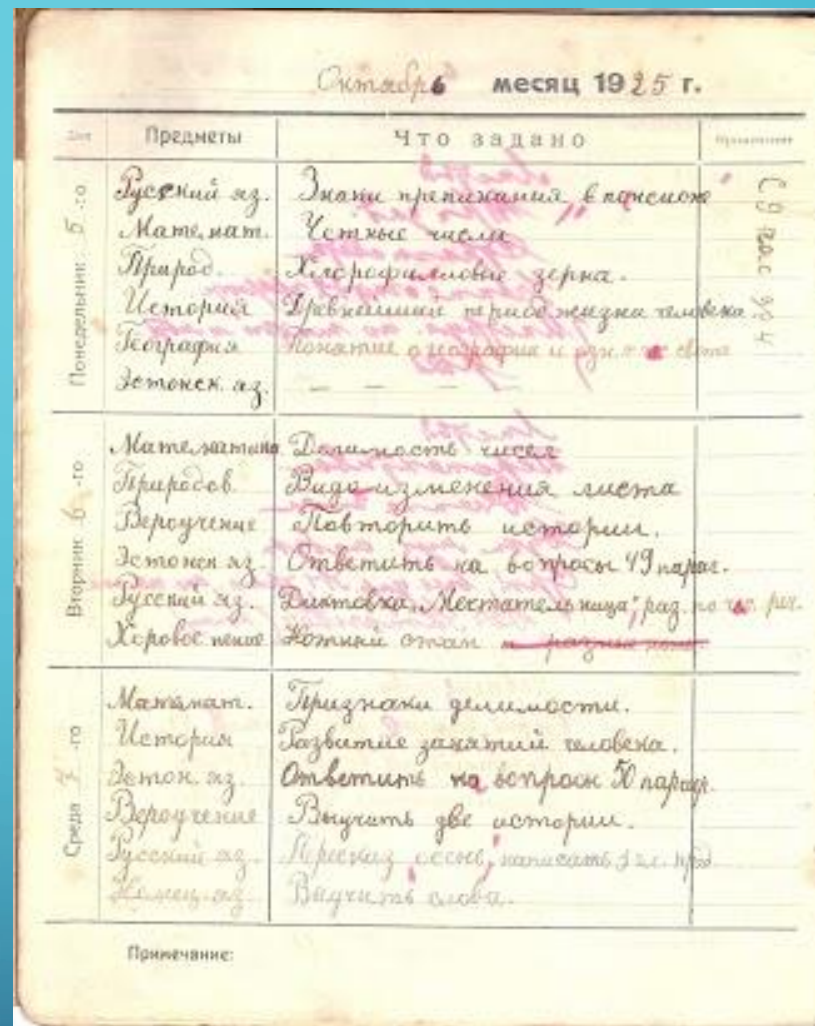 Октябрь месяц 1925 г.
Предметы Что задано
Понедельник 5-го
Русский яз. Знаки препинания в
Математ. Четные числа
Природ. Хлорофилловые зерна.
История Древнейший период жизни человека.
География Понятие о географии и света
Эстонск. яз. — — — —
Вторник 6-го
Математика Делимость чисел
Природов. Видоизменения листа
Вероучение Повторить истории.
Эстонск яз. Ответить на вопросы 49 параг.
Русский яз. Диктовка, раз. по реч.
Хоровое пение Нотный
Среда 7-го
Математ. Признаки делимости.
История Развитие занятий человека.
Эстон. яз. Ответить на вопросы 50 парагр.
Вероучение Выучить две истории.
Русский яз. Пересказ написать
Немец. яз. Выучить слова.
Примечание: